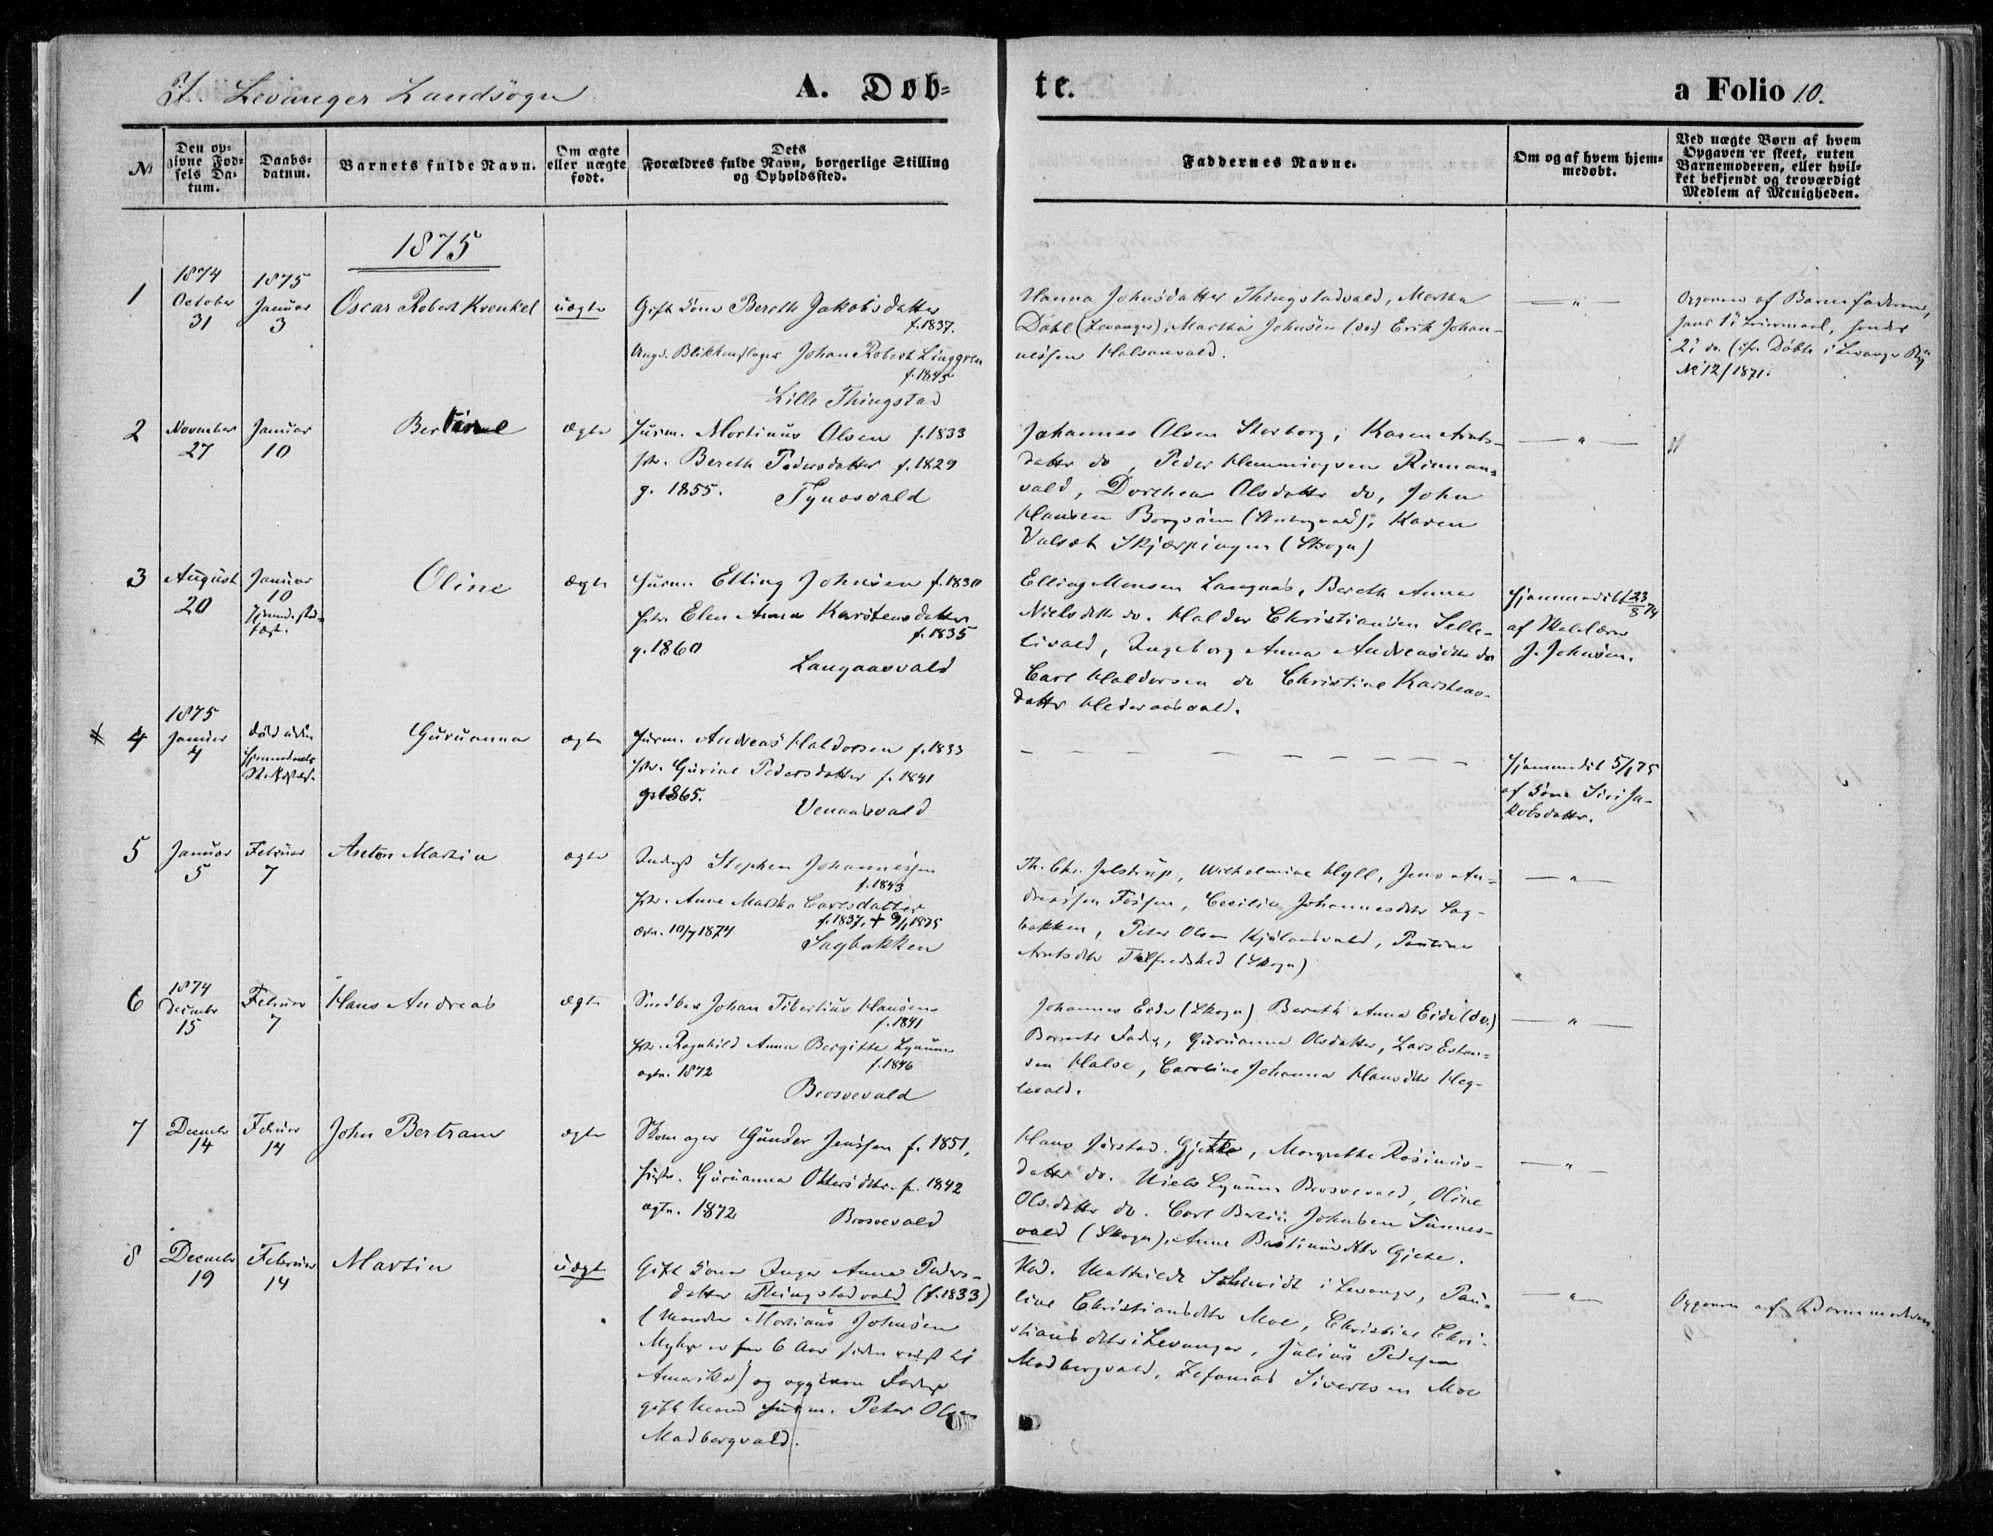 I. Levanger Landsogn
A. Døb-
te.
a Folio 10.
№
Den op-
givne Fød-
sels Da-
tum.
Daabs-
datum.
Barnets fulde Navn.
Om ægte
eller uægte
født.
Dets
Forældres fulde Navn, borgerlige Stilling
og Opholdssted.
Faddernes Navne.
Om og af hvem hjem-
medøbt.
Ved uægte Børn af hvem
Opgaven er skeet, enten
Barnemoderen, eller hvil-
ket bekjendt og troværdigt
Medlem af Menigheden.
1875
1
1874
October
31
1875
Januar
3
Oscar Robert Krenkel
uægte
Gift Kone Bereth Jakobsdatter
f. 1837.
Ungk. Blikkenslager Johan Robert Linggren
f. 1845
Lille Thingstad
Hanna Johnsdatter Thingstadvald, Martha
Dahl (Levanger), Martha Johnsen (do) Erik Johan-
nesen Halsanvald.
Opgiven af Barnefaderen,
hans 1ste Leiermaal, hendes
2det do. (cfr. Døbte i Levanger By
№ 12/1871.
2
November
27
Januar
10
Bertine
ægte
Husm. Martinus Olsen f. 1833
Hstr. Bereth Pedersdatter f. 1829
g. 1855.
Tynesvald
Johannes Olsen Storborg, Karen Arnts-
datter do, Peder Hemmingsen Rinnan-
vald, Dorthea Olsdatter do, John
Hansen Borgsåsen, Karen
Valset Skjærpingen (Skogn)
3
August
20
Januar
10
Oline
ægte
Husm. Elling Johnsen f. 1830
Hstr. Elen Anna Karstensdatter
f. 1835
g. 1860
Langaasvald
Elling Monsen Langaas, Bereth Anna
Nielsdatter do. Haldor Christiansen Selle-
livald, Ingeborg Anna Andreasdtr do
Carl Haldorsen do Christine Karstens-
datter Hederaasvald.
Hjemmedøbt 23/8 74
af
J. Johnsen.
4
1875
Januar
4
Guruanna
ægte
Husm. Andreas Haldorsen f. 1833
Hstr. Gurine Pedersdatter f. 1841
g. 1865.
Venaasvald
Hjemmedøbt 5/1 75
af Kone Siri Ja-
kobsdatter.
5
Januar
5
Februar
7
Anton Martin
ægte
Inderst Stephen Johannesen
f. 1843
Hstr. Anne Martha Carlsdatter
f. 1837. + 9/1 1875
10/7 1874
Sagbakken
Th. Chr. Julstrup, Wilhelmine Hyll, Jens An-
dreassen, Cecilie Johannesdtr Sag-
bakken, Peter Olsen Kjølaasvald, Pauline
Arntsdtr (Skogn)
6
1874
Decembr
15
Februar
7
Hans Andreas
ægte
Snedker Johan Tibertius Hansen
f. 1841
Hstr. Ragnhild Anna Bergitte Lynum
f. 1846
ægtv. 1872
Brosvevald
Johannes Eide (Skogn) Bereth Anna Eide (do.)
Barnets Fader, Guruanna Olsdatter, Lars Esten-
sen Halse, Caroline Johanna Hansdtr Heg-
levald.
7
Decembr
14
Februar
14
John Bertram
ægte
Skomager Gunder Jensen f. 1851,
Hustr. Guruanna Ottersdtr. f. 1842
ægtv. 1872
Brosvevald
Hans Jørstad Gjette, Margrethe Rasmus-
datter do. Niels Lynum Brosvevald, Oline
Olsdatter do. Carl Berlin Johnsen Sunnes-
vald (Skogn), Anne Bastinusdtr Gjete.
8
Decembr
19
Februar
14
Martin
uægte
Gift Kone Inger Anna Peders-
datter Thingstadvald (f. 1833)
(Manden Martinus Johnsen
Myhr er for 6 Aar siden reist til
Amerika) og opgiven Fader
gift Mand Husm. Peter Olsen
Madbergvald.
Mad. Mathilde Schmidt i Levanger, Pau-
line Christiansdtr Moe, Christine Chri-
stiansdtr i Levanger, Julius Pedersen
Madbergvald, Zefanias Sivertsen Moe
Opgiven af Barnemoderen.